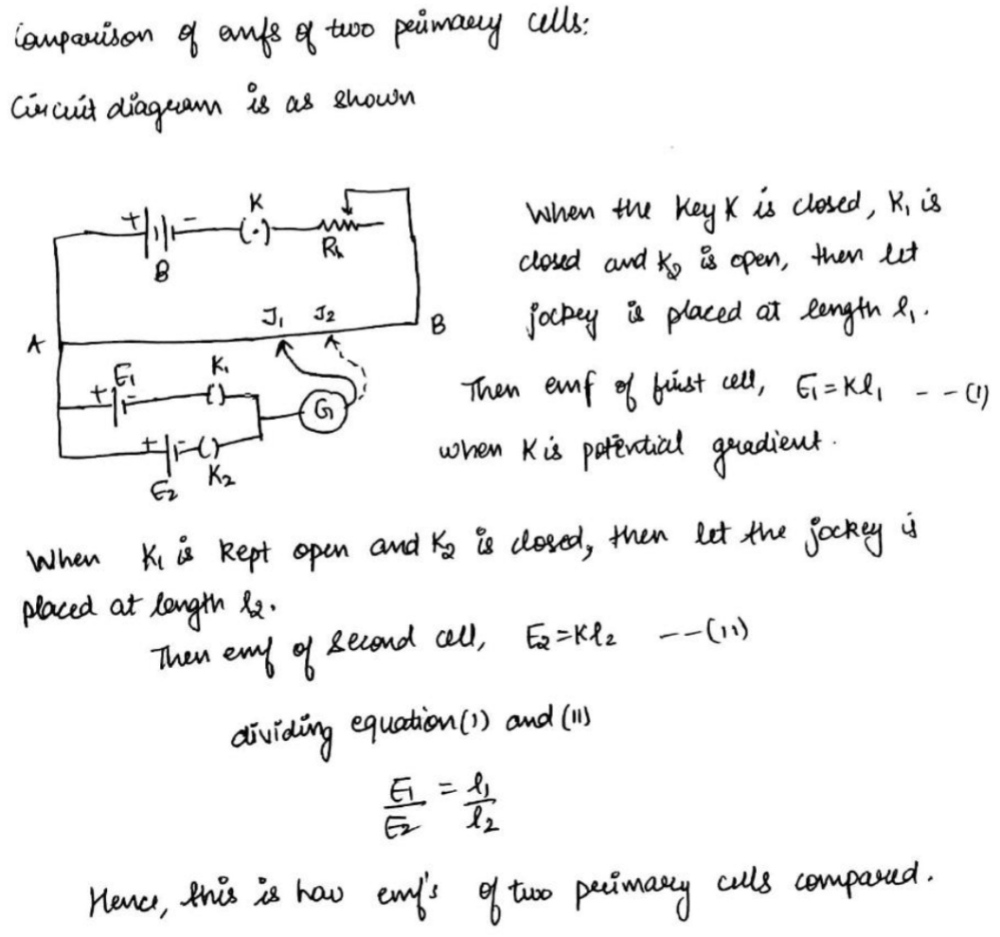 Comparison of emfs of two primary cells:
Circuit diagram is as shown
K
+ -
B
Rh
When the key K is closed, K₁ is
closed and K₂ is open, then let
jockey is placed at length l₁.
J₁ J₂
A
B
E₁
K₁
+
G
Then emf of first cell, E₁=Kl₁ --(1)
when K is potential gradient.
+
E₂
K₂
When K₁ is kept open and K₂ is closed, then let the jockey is
placed at length l₂.
Then emf of second cell, E₂=Kl₂ --(11)
dividing equation(1) and (11)
E₁/E₂ = l₁/l₂
Hence, this is how emf's of two primary cells compared.